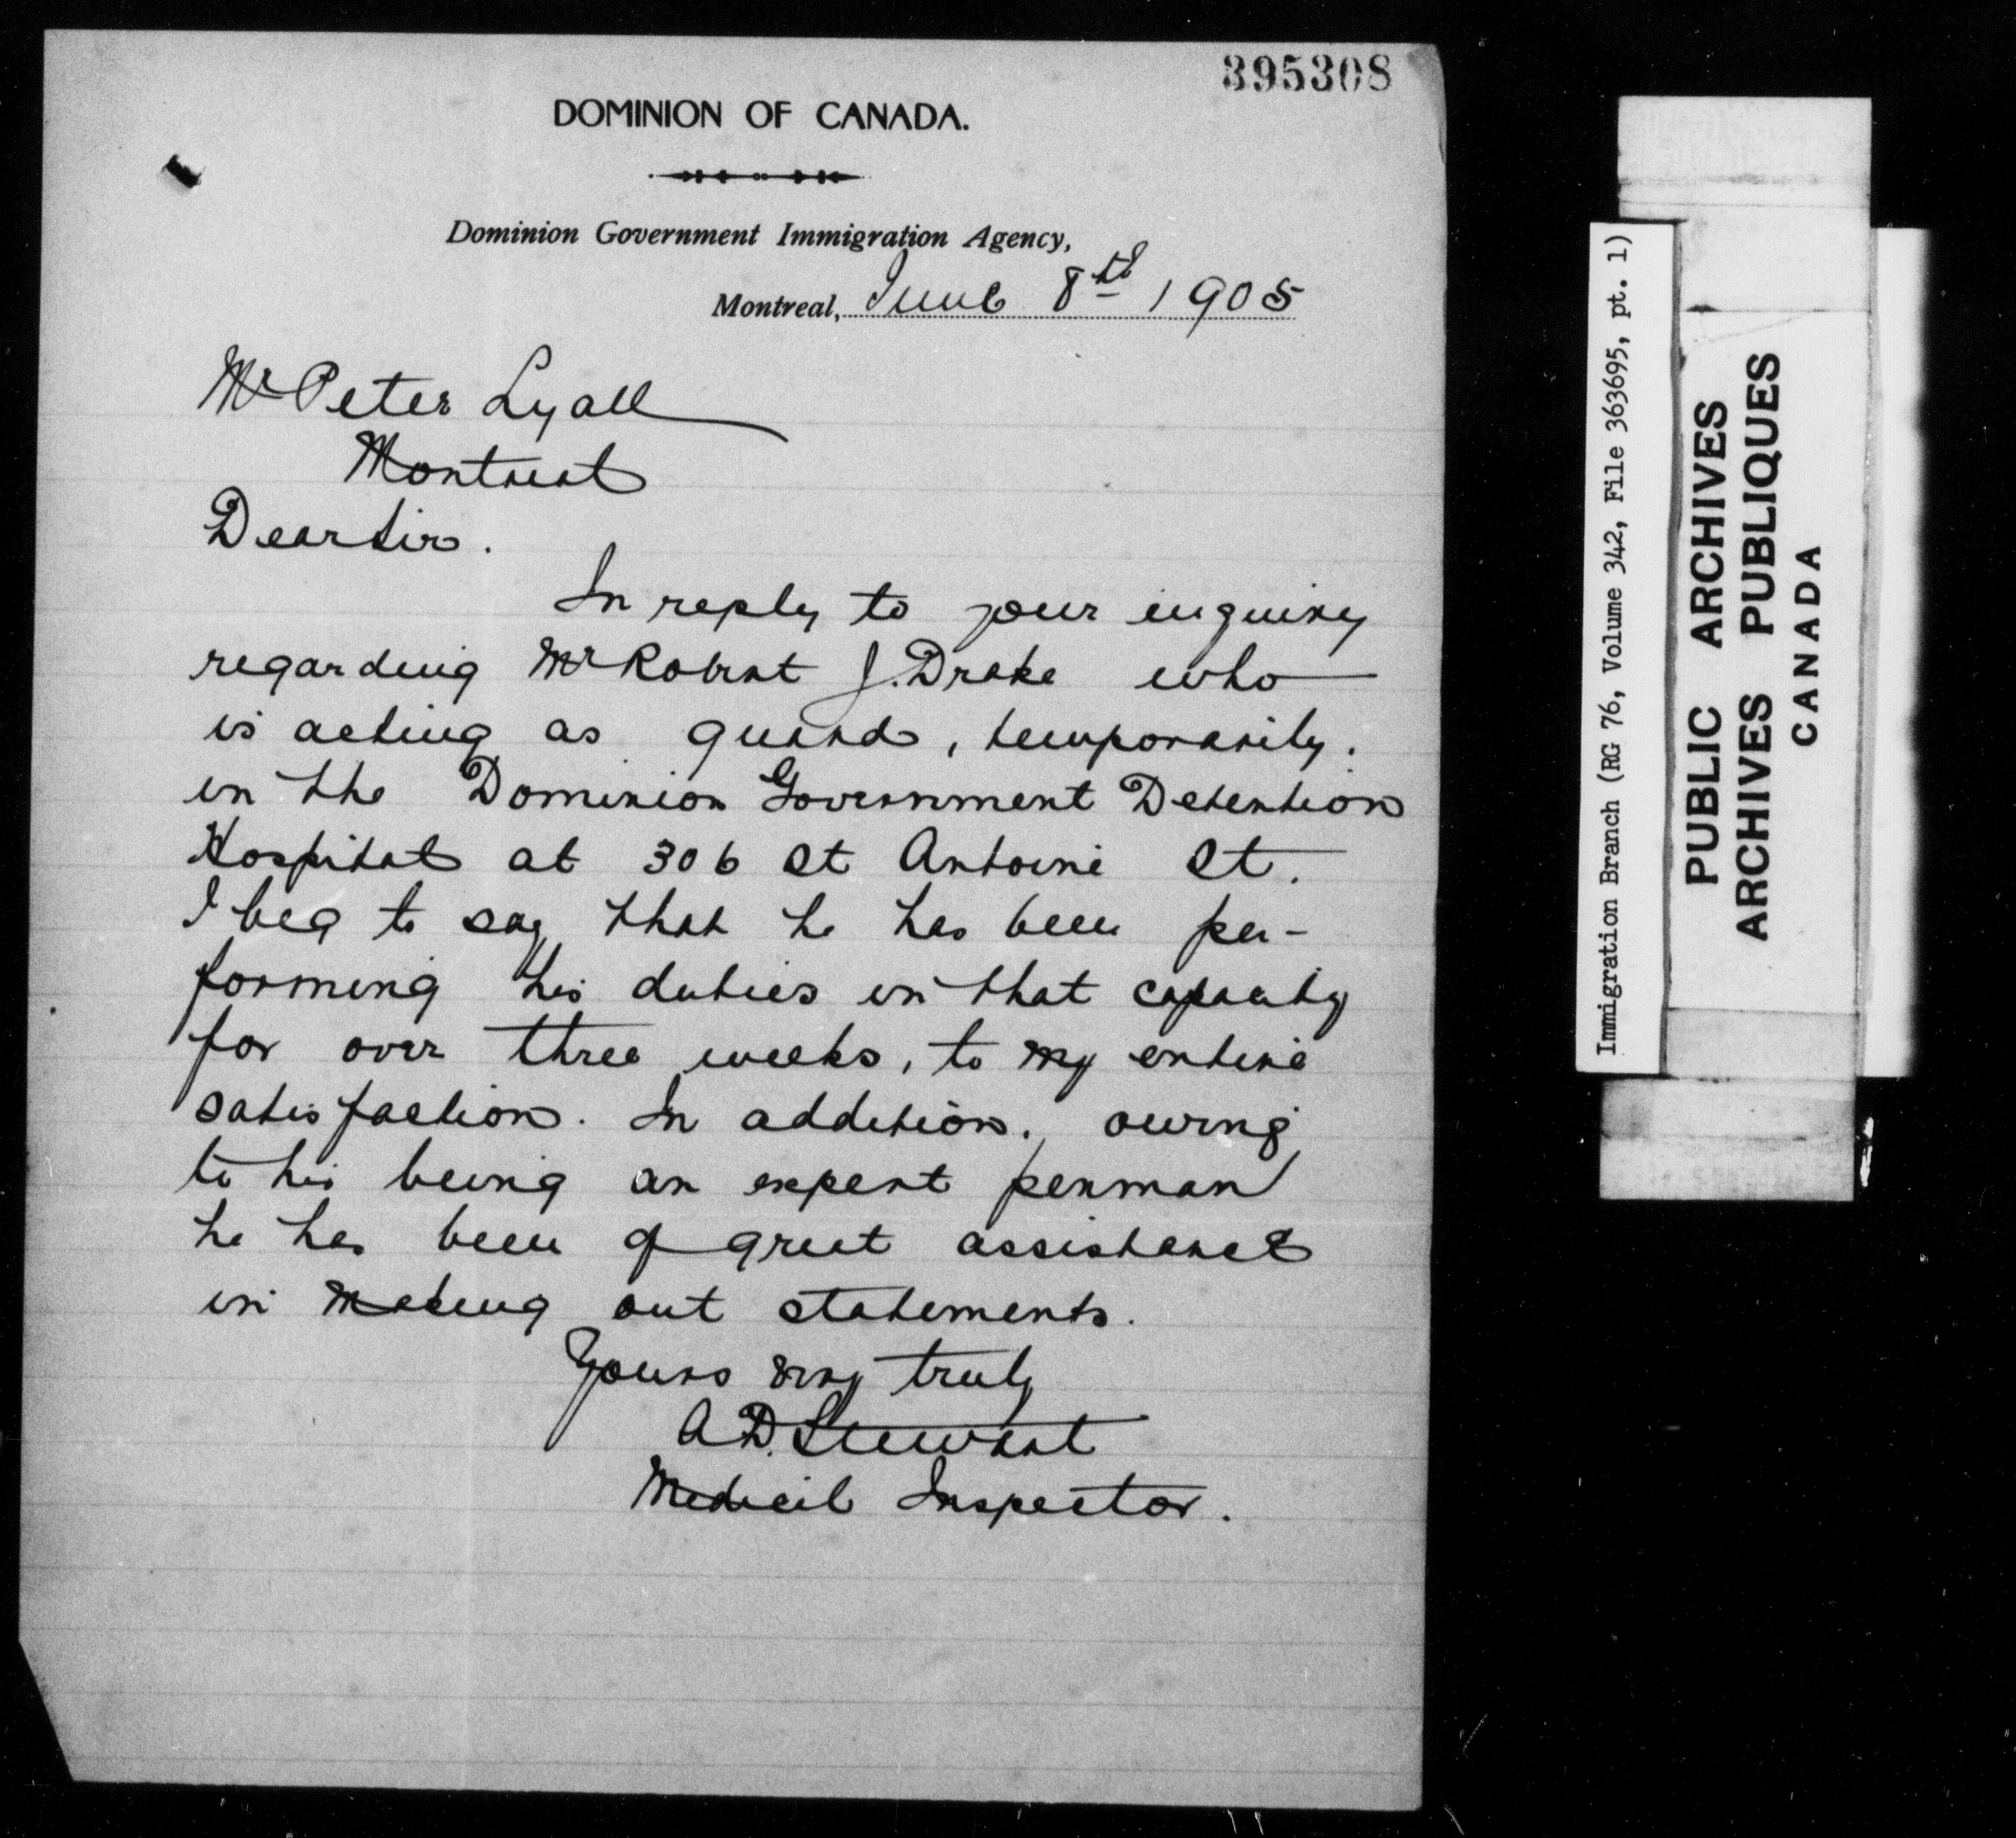 395308
DOMINION OF CANADA.
Dominion Government Immigration Agency,
Montreal, June 8th 1905
Mr Peter Lyall
Montreal
Dear Sir.
In reply to your inquiry
regarding Mr Robert J. Drake who
is acting as guard, temporarily.
in the Dominion Government Detention
Hospital at 306 St Antoine St.
I beg to say that he has been per-
forming his duties in that capacity
for over three weeks, to my entire
satisfaction. In addition, owing
to his being an expert penman
he has been of great assistance
in making out statements.
Yours very truly
A.D. Stewart
Medical Inspector.
Immigration Branch (RG 76, Volume 342, File 363695, pt. 1)
PUBLIC ARCHIVES
ARCHIVES PUBLIQUES
CANADA